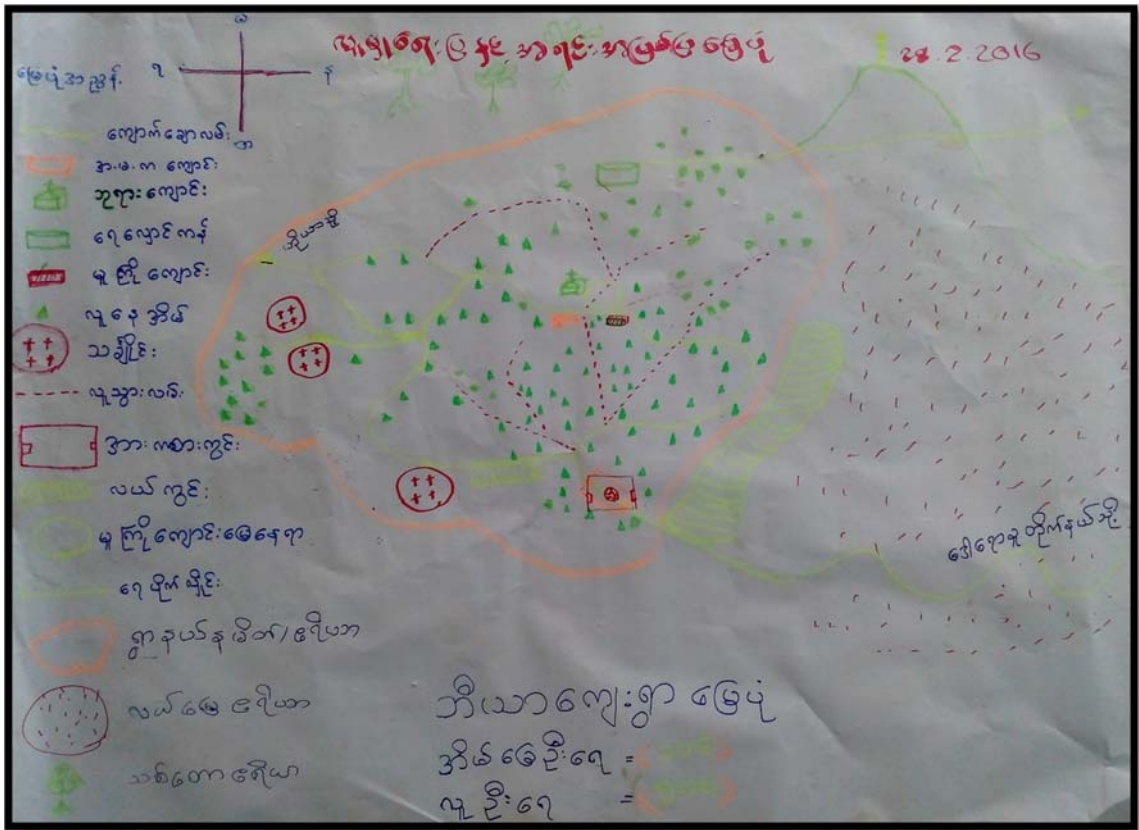 လူမှုရေးပြနှင့် အရင်းအမြစ်ပြမြေပုံ 28.2.2016
မြေပုံအညွှန်း
ရ န
ကျောက်ချောလမ်း
အ.မ.က ကျောင်း
ဘုရားကျောင်း
ရေလှောင်ကန်
မူကြိုကျောင်း
လူနေအိမ်
သင်္ချိုင်း
လူသွားလမ်း
အားကစားကွင်း
လယ်ကွင်း
မူကြိုကျောင်းမြေနေရာ
ရေပိုက်လိုင်း
ရွာနယ်နမိတ်/ဧရိယာ
လယ်မြေဧရိယာ
သစ်တောဧရိယာ
ဒေါရောခူတိုက်နယ်သို့
ဘီယာကျေးရွာ မြေပုံ
အိမ်ခြေဦးရေ =
လူဦးရေ =